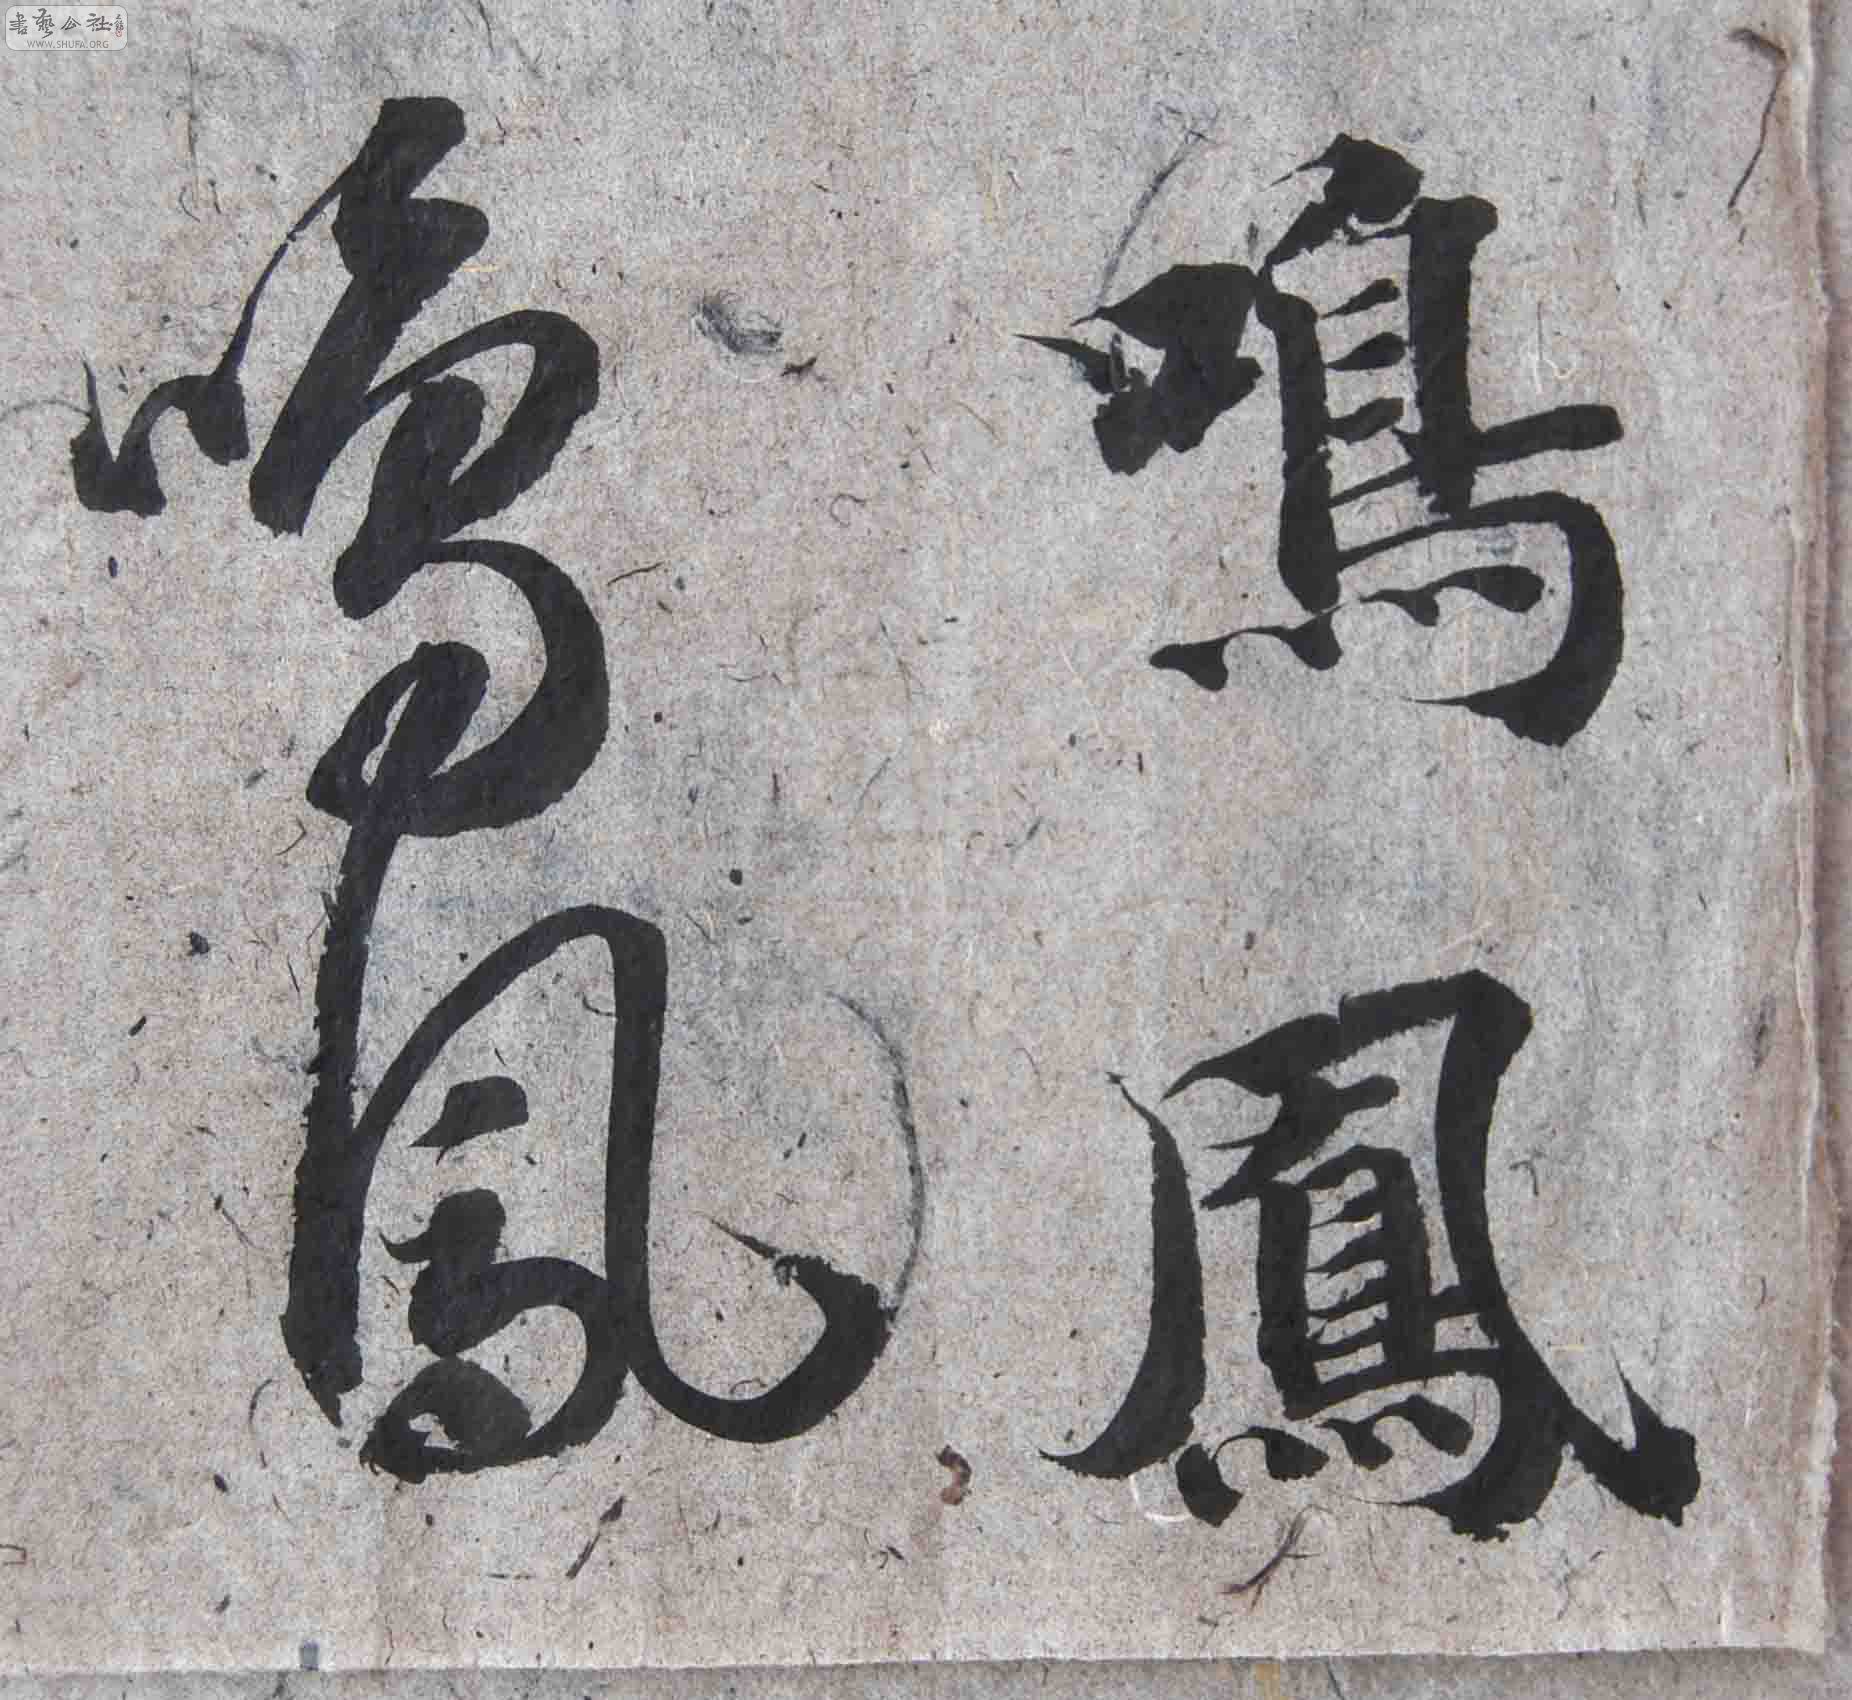 鳴鳳
鳴鳳
書藝公社
WWW.SHUFA.ORG